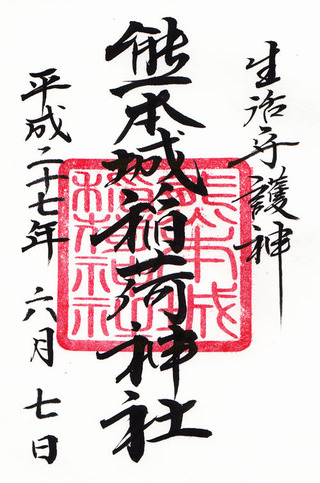 生活守護神
熊本城稲荷神社
平成二十七年 六月 七日
熊本城
稲荷神社